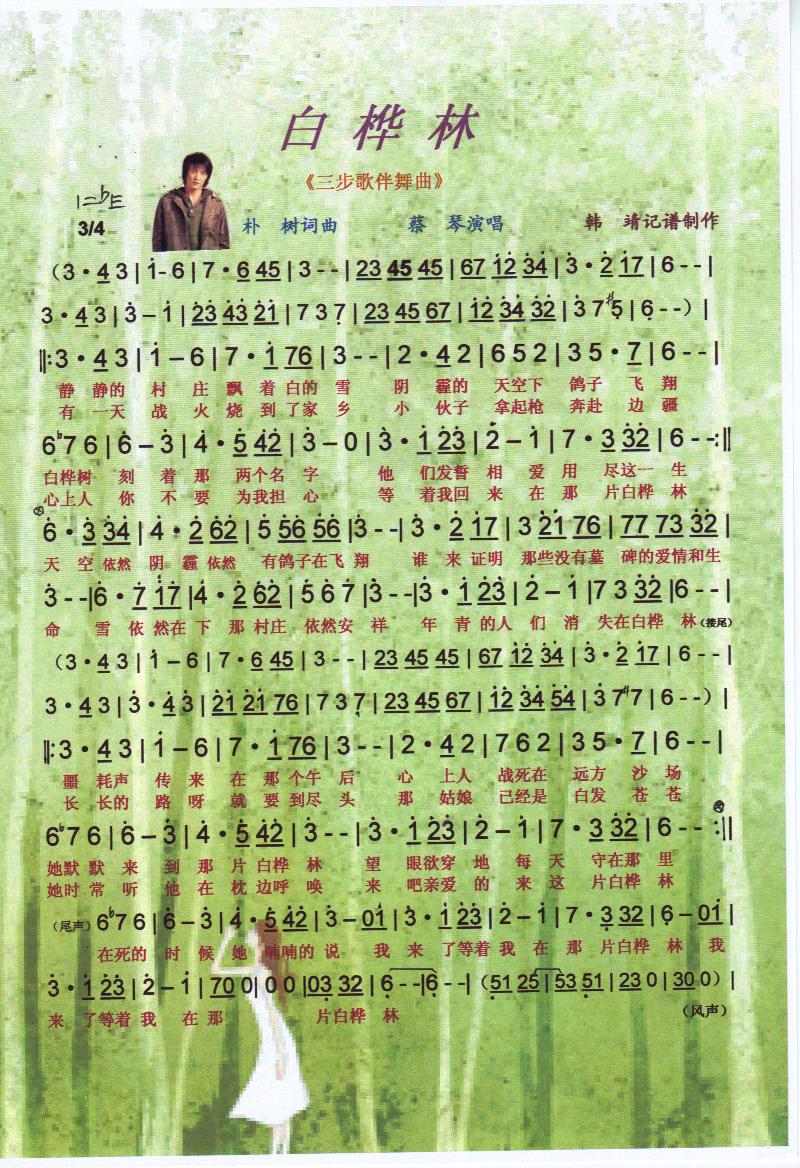 白桦林
《三步歌伴舞曲》
1=♭E
3/4
朴 树词曲 蔡 琴演唱 韩 靖记谱制作
（3·4 3 | 1- 6 | 7·6 45 | 3 - - | 23 45 45 | 67 12 34 | 3·2 17 | 6 - - |
3·43 | 3–1 | 23 43 21 | 7 3 7 | 23 45 67 | 12 34 32 | 3 7 #5 | 6 - - ）|
‖:3·4 3 | 1–6 | 7·1 76 | 3 - - | 2·4 2 | 6 5 2 | 3 5·7 | 6 - - |
静 静的 村 庄 飘 着 白的 雪 阴 霾的 天空下 鸽子 飞 翔
有 一天 战 火 烧 到 了家 乡 小 伙子 拿起枪 奔赴 边 疆
6♭7 6 | 6–3 | 4·5 42 | 3 – 0 | 3·1 23 | 2–1 | 7·3 32 | 6 - -:‖
白桦树 刻 着 那 两个名 字 他 们发誓 相 爱 用 尽这一 生
心上人 你 不 要 为我担 心 等 着我回 来 在 那 片白桦 林
6·3 34 | 4·2 62 | 5 56 56 |3 - -| 3·2 17 | 3 21 76 | 77 73 32 |
天 空 依然 阴 霾 依然 有鸽子在飞 翔 谁 来 证明 那些没有墓 碑的爱情和生
3 - -|6·7 17 |4·2 62 | 5 6 7 |3 - -|3·1 23 | 2–1 |7 3 32 |6 - - |
命 雪 依 然在 下 那 村庄 依然安 祥 年 青 的人 们 消 失在白桦 林（接尾）
（3·4 3 | 1–6 | 7·6 45 | 3 - - | 23 45 45 | 67 12 34 | 3·2 17 | 6 - - |
3·4 3 | 3·4 3 | 21 21 76 | 7 3 7 | 23 45 67 | 12 34 54 | 3 7#7 | 6 - - ）|
‖:3·4 3 | 1–6 | 7·1 76 | 3 - - | 2·4 2 | 7 6 2 | 3 5·7 | 6 - - |
噩 耗声 传 来 在 那 个午 后 心 上人 战死在 远方 沙 场
长 长的 路 呀 就 要 到尽 头 那 姑娘 已经是 白发 苍 苍
6♭7 6 | 6–3 | 4·5 42 | 3 - - | 3·1 23 | 2–1 | 7·3 32 | 6 - - :‖
她默 默 来 到 那 片 白桦 林 望 眼欲穿 地 每 天 守在那 里
她时 常 听 他 在 枕 边呼 唤 来 吧亲爱 的 来 这 片白桦 林
（尾声）6♭7 6 | 6–3 | 4·5 42 | 3–01 | 3·1 23 | 2–1 | 7·3 32 | 6–01 |
在死的 时 候 她 喃喃的 说 我 来 了等着 我 在 那 片白桦 林 我
3·1 23 | 2–1 | 70 0| 0 0 |03 32 | 6 - -|6 - -|（51 25 | 53 51 | 23 0 | 30 0）|
来 了等着 我 在 那 片白桦 林 （风声）